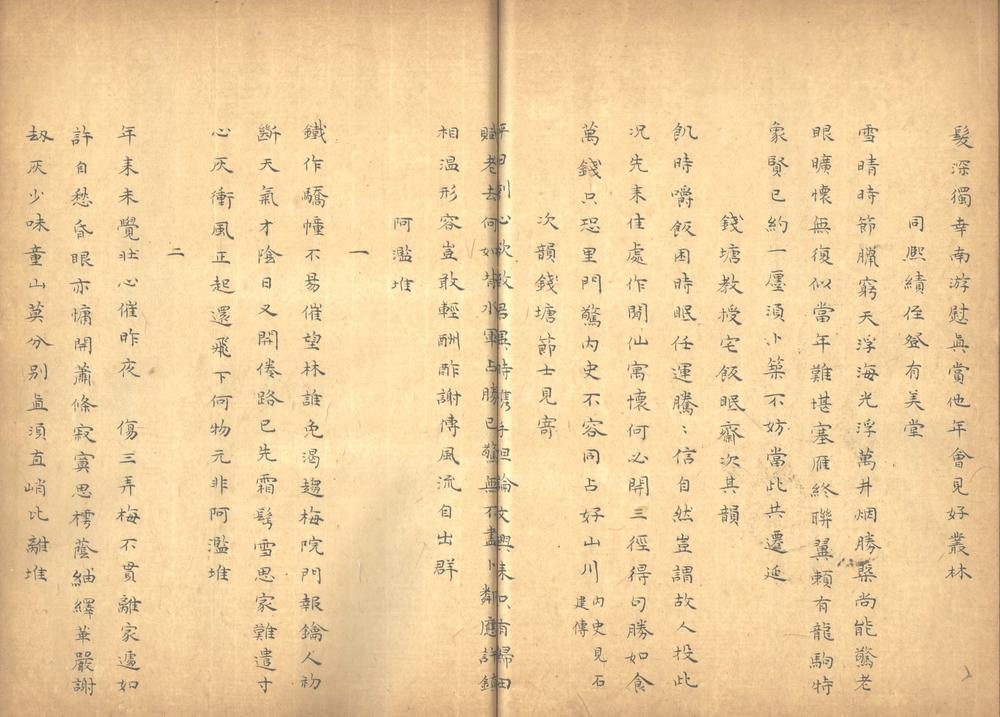 髮深獨幸南游慰眞賞他年會見好叢林
同熈績侄登有美堂
雪晴時節臘窮天浮海光浮萬井烟勝槩尚能驚老
眼曠懷無復似當年難堪塞雁終聯翼賴有龍駒特
象賢已約一廛須小築不妨當此共遷延
錢塘教授宅飯眠齋次其韻
飢時嚼飯困時眠任運騰〻信自然豈謂故人投此
况先来佳處作閒仙寓懷何必開三徑得句勝如食
萬錢只恐里門驚内史不容同占好山川内史見石
建傳
次韻錢塘節士見寄
賦老去何如
相溫形容豈敢輕酬酢謝傅風流自出群
阿濫堆
一
鐵作驕幢不易催望林誰免渴趨梅院門報鑰人初
斷天氣才陰日又開倦路已先霜髩雪思家難遣寸
心灰衝風正起還飛下何物元非阿濫堆
二
年来未覺壯心催昨夜 傷三弄梅不貫離家遽如
許自愁昏眼亦慵開蕭條寂寞思樗蔭紬繹華嚴謝
刼灰少味童山莫分别直須直峭比離堆